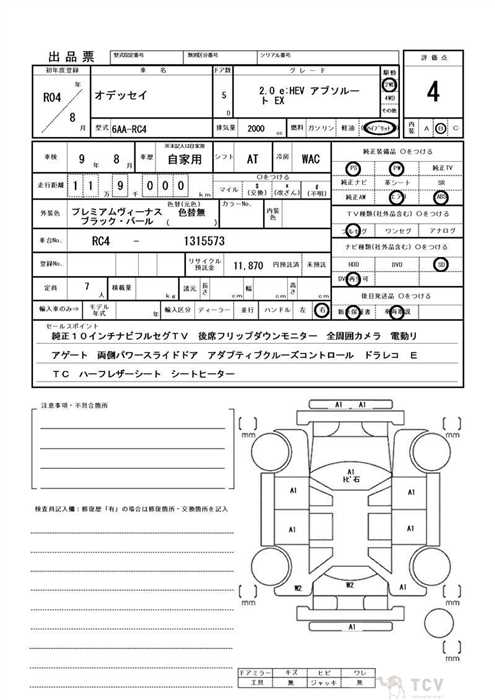 出品票 型式指定番号 類別区分番号 シリアル番号
初年度登録 車名 ドア数 グレード 駆動 評価点
R04年 8月 オデッセイ 5D 2.0 e:HEV アブソルー 2WD 4
ト EX 4WD
その他
型式 6AA-RC4 排気量 2000 cc 燃料 ガソリン 軽油 ハイブリット 内装 A B C
車検 9年 8月 車歴 ※未記入は自家用 自家用 シフト AT 冷房 WAC
純正装備品 〇をつける
PS PW 純正TV
純正ナビ 革シート SR
純正AW エアB ABS
走行距離 11万9千000km 〇をつける マイル $(交換) *(改ざん) #(不明)
外装色 プレミアムヴィーナス 色替(元色) カラーNo. 内装色
ブラック・パール ( 色替無 )
TV種類(社外品含む) 〇をつける
フルセグ ワンセグ アナログ
車台No. RC4 - 1315573
ナビ種類(社外品含む) 〇をつける
HDD DVD SD
登録No. リサイクル預託金 11,870 円預託済 未預託
DVD再生可
定員 7人 積載量 kg 諸元 長さ cm 幅 cm 高さ cm
後日発送品 〇をつける
輸入車のみ⇒ モデル年式 年 輸入区分 ディーラー 並行 ハンドル 左 右 新車保証書 車両取説
セールスポイント
純正10インチナビフルセグTV 後席フリップダウンモニター 全周囲カメラ 電動リ
アゲート 両側パワースライドドア アダプティブクルーズコントロール ドラレコ E
TC ハーフレザーシート シートヒーター
注意事項・不具合箇所
検査員記入欄：修復歴「有」の場合は修復箇所・交換箇所を記入
A1 A1
mm mm
A1
ﾄﾋﾞ石
A1 A1
A1 A1
W2 W2 A1
mm mm
A1
ドアミラー キズ ヒビ ワレ
工具 無 ジャッキ 無
TCV